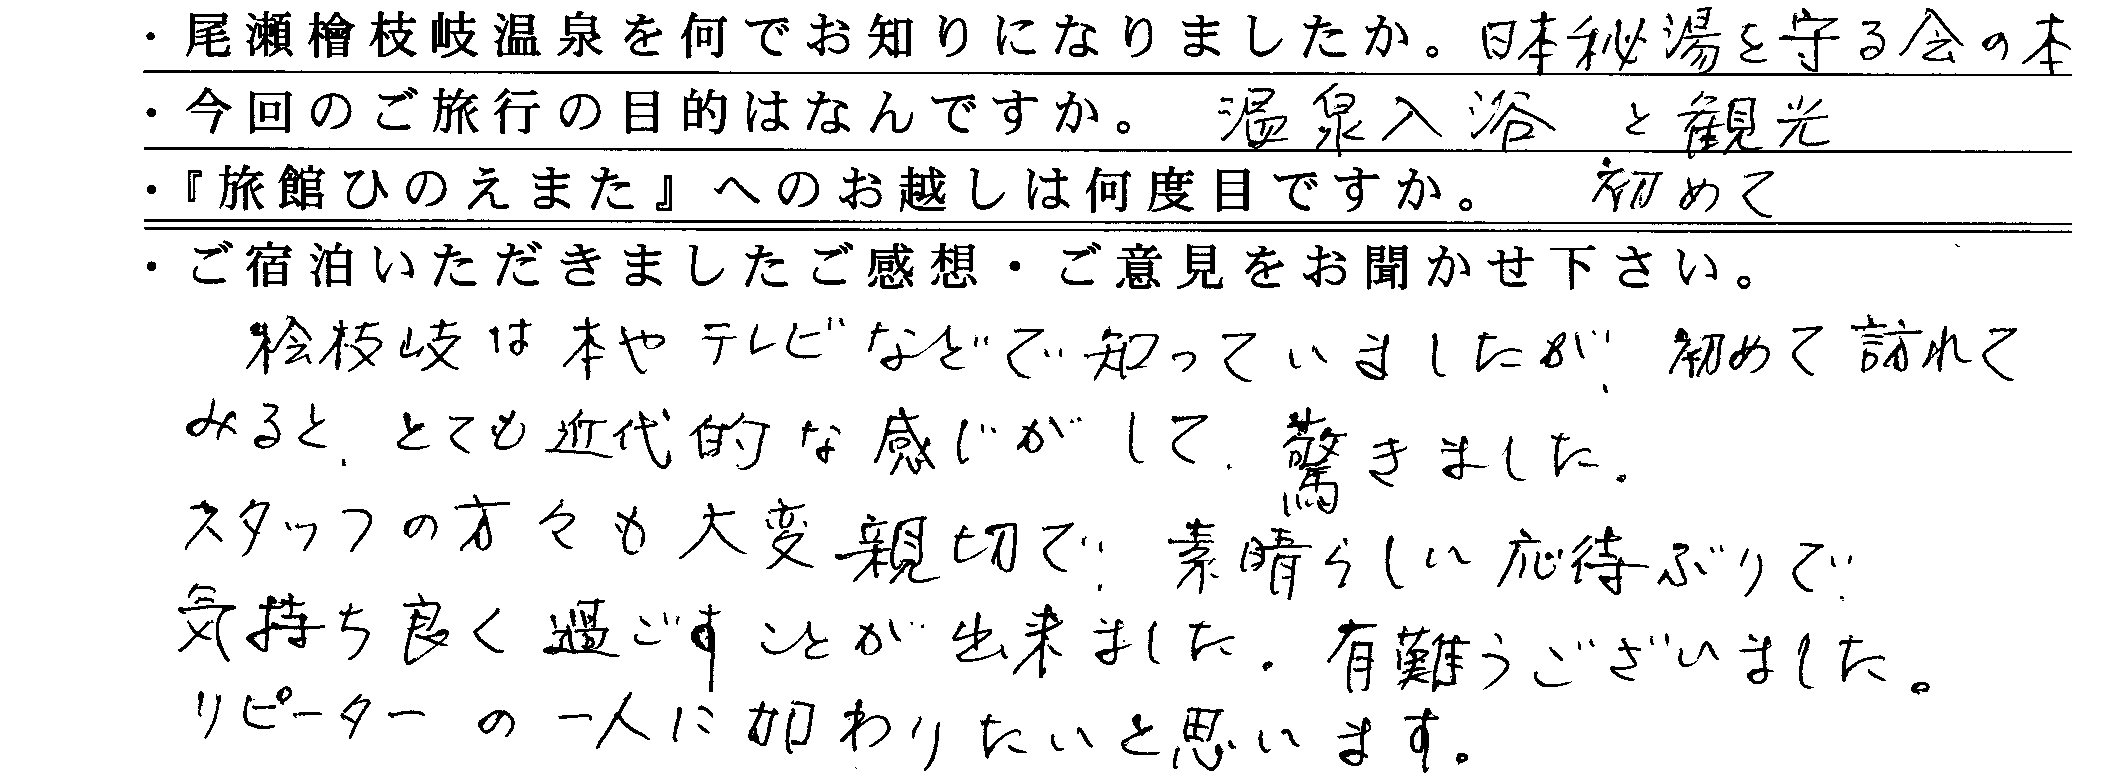 ・尾瀬檜枝岐温泉を何でお知りになりましたか。日本秘湯を守る会の本
・今回のご旅行の目的はなんですか。 温泉入浴 と観光
・『旅館ひのえまた』へのお越しは何度目ですか。 初めて
・ご宿泊いただきましたご感想・ご意見をお聞かせ下さい。
桧枝岐は本やテレビなどで知っていましたが、初めて訪れて
みると、とても近代的な感じがして、驚きました。
スタッフの方々も大変親切で、素晴らしい応待ぶりで、
気持ち良く過ごすことが出来ました。有難うございました。
リピーターの一人に加わりたいと思います。